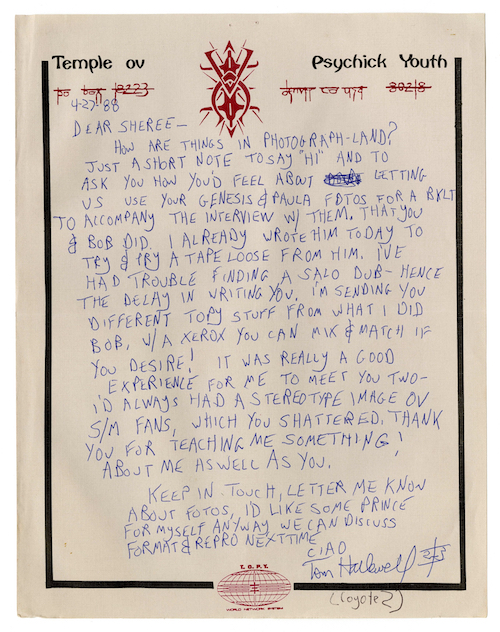 Temple ov Psychick Youth
po box 8223
4-27-88
DEAR SHEREE—
HOW ARE THINGS IN PHOTOGRAPH-LAND?
JUST A SHORT NOTE TO SAY "HI" AND TO
ASK YOU HOW YOU'D FEEL ABOUT LETTING
US USE YOUR GENESIS & PAULA FOTOS FOR A BKLT
TO ACCOMPANY THE INTERVIEW W/ THEM, THAT YOU
& BOB DID. I ALREADY WROTE HIM TODAY TO
TRY & PRY A TAPE LOOSE FROM HIM. I'VE
HAD TROUBLE FINDING A SALO DUB- HENCE
THE DELAY IN WRITING YOU. I'M SENDING YOU
DIFFERENT TOPY STUFF FROM WHAT I DID
BOB, W/A XEROX YOU CAN MIX & MATCH IF
YOU DESIRE! IT WAS REALLY A GOOD
EXPERIENCE FOR ME TO MEET YOU TWO-
I'D ALWAYS HAD A STEREOTYPE IMAGE OV
S/M FANS, WHICH YOU SHATTERED. THANK
YOU FOR TEACHING ME SOMETHING!
ABOUT ME AS WELL AS YOU.
KEEP IN TOUCH, LETTER ME KNOW
ABOUT FOTOS, I'D LIKE SOME PRINCE
FOR MYSELF ANYWAY WE CAN DISCUSS
FORMAT & REPRO NEXT TIME
CIAO
Tom
(Coyote 2)
T.O.P.Y.
WORLD NETWORK SYSTEM